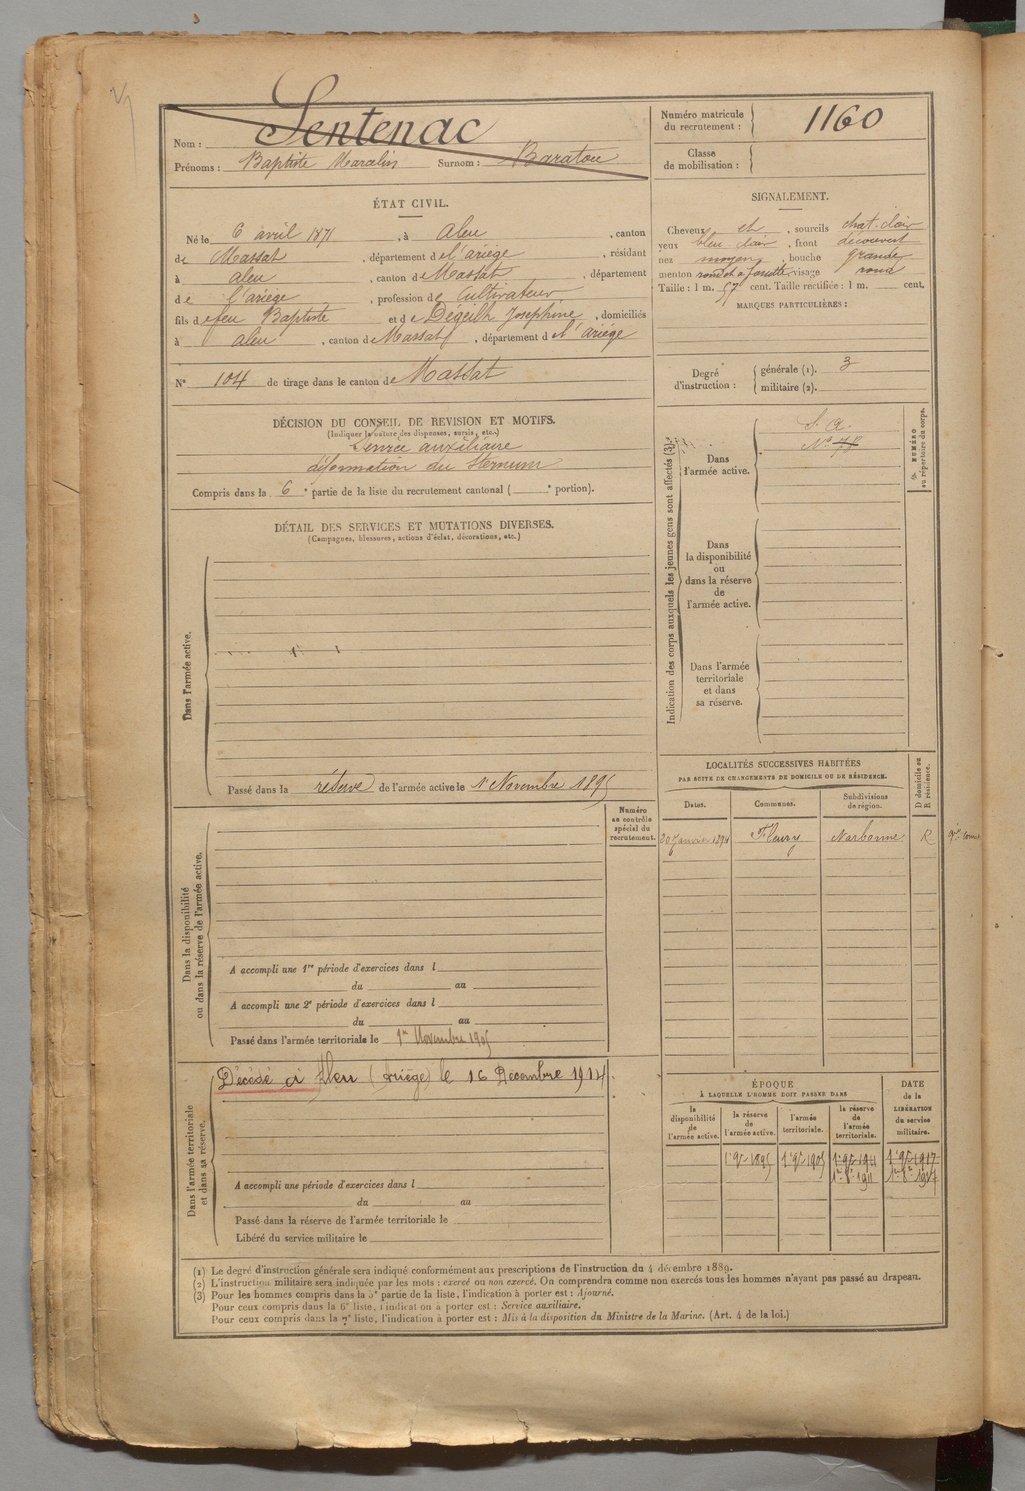 Nom : Sentenac
Prénoms : Baptiste Marcelin Surnom : Baratou
Numéro matricule du recrutement : 1160
Classe de mobilisation :
ÉTAT CIVIL.
Né le 6 avril 1871, à Aleu, canton
de Massat, département de l'ariège, résidant
à aleu, canton de Massat, département
de l'ariège, profession de Cultivateur
fils de feu Baptiste et de Dégeilh Joséphine, domiciliés
à aleu, canton de Massat, département de l'ariège
N° 104 de tirage dans le canton de Massat
SIGNALEMENT.
Cheveux et, sourcils chat. clair
yeux bleu clair, front découvert
nez moyen, bouche grande
menton rond et à fossette, visage rond
Taille : 1 m. 57 cent. Taille rectifiée : 1 m. cent.
MARQUES PARTICULIÈRES :
Degré d'instruction :
générale (1). 3
militaire (2).
DÉCISION DU CONSEIL DE REVISION ET MOTIFS.
(Indiquer la nature des dispenses, sursis, etc.)
Service auxiliaire
déformation du sternum
Compris dans la 6e partie de la liste du recrutement cantonal ( e portion).
DÉTAIL DES SERVICES ET MUTATIONS DIVERSES.
(Campagnes, blessures, actions d'éclat, décorations, etc.)
Dans l'armée active.
Passé dans la réserve de l'armée active le 1er Novembre 1895
Indication des corps auxquels les jeunes gens sont affectés (3).
NUMÉRO au répertoire du corps.
Dans l'armée active.
S. a.
N° 78
Dans la disponibilité ou dans la réserve de l'armée active.
Dans l'armée territoriale et dans sa réserve.
LOCALITÉS SUCCESSIVES HABITÉES
PAR SUITE DE CHANGEMENTS DE DOMICILE OU DE RÉSIDENCE.
Dates. Communes. Subdivisions de région. D domicile ou R résidence.
20 Janvier 1894 Fleury Narbonne R
Dans la disponibilité ou dans la réserve de l'armée active.
Numéro au contrôle spécial du recrutement.
A accompli une 1re période d'exercices dans l
du au
A accompli une 2e période d'exercices dans l
du au
Passé dans l'armée territoriale le 1er Novembre 1905
Dans l'armée territoriale et dans sa réserve.
Décédé à Aleu (Ariège) le 16 Decembre 1914.
A accompli une période d'exercices dans l
du au
Passé dans la réserve de l'armée territoriale le
Libéré du service militaire le
ÉPOQUE
À LAQUELLE L'HOMME DOIT PASSER DANS
DATE de la LIBÉRATION du service militaire.
la disponibilité de l'armée active. la réserve de l'armée active. l'armée territoriale. la réserve de l'armée territoriale.
1er 9bre 1895 1er 9bre 1905 1er 9bre 1911 1er 9bre 1917
1er 8bre 1911 1er 8bre 1917
(1) Le degré d'instruction générale sera indiqué conformément aux prescriptions de l'instruction du 4 décembre 1889.
(2) L'instruction militaire sera indiquée par les mots : exercé ou non exercé. On comprendra comme non exercés tous les hommes n'ayant pas passé au drapeau.
(3) Pour les hommes compris dans la 5e partie de la liste, l'indication à porter est : Ajourné.
Pour ceux compris dans la 6e liste, l'indication à porter est : Service auxiliaire.
Pour ceux compris dans la 7e liste, l'indication à porter est : Mis à la disposition du Ministre de la Marine. (Art. 4 de la loi.)